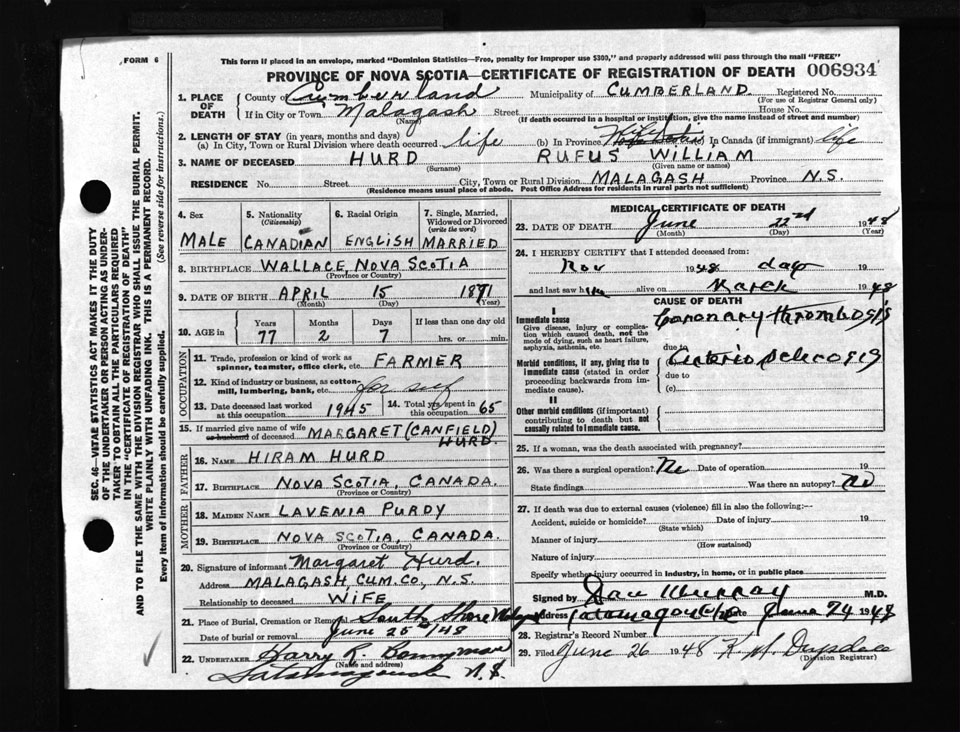 FORM 6
This form may be placed in an envelope, marked "Dominion Statistics—Free, penalty for improper use $300," and properly addressed will pass through the mail "FREE"
PROVINCE OF NOVA SCOTIA—CERTIFICATE OF REGISTRATION OF DEATH 006934
1. PLACE OF DEATH County of Cumberland Municipality of CUMBERLAND Registered No.
(For use of Registrar General only)
If in City or Town Malagash Street House
(Name) (If death occurred in a hospital or institution, give the name instead of street and number)
2. LENGTH OF STAY (in years, months and days)
(a) In City, Town or Rural Division where death occurred life (b) In Province life In Canada (if immigrant) life
3. NAME OF DECEASED HURD RUFUS WILLIAM
(Surname) (Given name or names)
RESIDENCE No. Street City, Town or Rural Division MALAGASH Province N.S.
(Residence means usual place of abode. Post Office Address for residents in rural parts not sufficient)
4. Sex 5. Nationality (Citizenship) 6. Racial Origin 7. Single, Married, Widowed or Divorced (write the word)
MALE CANADIAN ENGLISH MARRIED
8. BIRTHPLACE WALLACE, NOVA SCOTIA
(Province or Country)
9. DATE OF BIRTH APRIL 15 1871
(Month) (Day) (Year)
10. AGE in Years Months Days If less than one day old
77 2 7 hrs. or min.
OCCUPATION
11. Trade, profession or kind of work as spinner, teamster, office clerk, etc. FARMER
12. Kind of industry or business, as cotton-mill, lumbering, bank, etc. for self
13. Date deceased last worked at this occupation 1945 14. Total yrs. spent in this occupation 65
15. If married give name of wife or husband of deceased MARGARET (CANFIELD) HURD.
FATHER
16. NAME HIRAM HURD
17. BIRTHPLACE NOVA SCOTIA, CANADA.
(Province or Country)
MOTHER
18. MAIDEN NAME LAVENIA PURDY
19. BIRTHPLACE NOVA SCOTIA, CANADA.
(Province or Country)
20. Signature of informant Margaret Hurd.
Address MALAGASH, CUM. CO., N.S.
Relationship to deceased WIFE
21. Place of Burial, Cremation or Removal South Shore
Date of burial or removal June 25/48
22. UNDERTAKER Harry R. Bonnyman
(Name and address)
Tatamagouche N.S.
MEDICAL CERTIFICATE OF DEATH
23. DATE OF DEATH June 22nd 1948
(Month) (Day) (Year)
24. I HEREBY CERTIFY that I attended deceased from:
Nov 1948 day
and last saw him alive on March 1948
CAUSE OF DEATH
I
Immediate cause Coronary thrombosis
Give disease, injury or complication which caused death, not the mode of dying, such as heart failure, asphyxia, asthenia, etc.
due to
Arterio sclerosis
Morbid conditions, if any, giving rise to immediate cause (stated in order proceeding backwards from immediate cause).
due to
(c)
II
Other morbid conditions (if important) contributing to death but not causally related to immediate cause.
25. If a woman, was the death associated with pregnancy?
26. Was there a surgical operation? No Date of operation 19
State findings Was there an autopsy? No
27. If death was due to external causes (violence) fill in also the following:—
Accident, suicide or homicide? Date of injury 19
(State which)
Manner of injury
(How sustained)
Nature of injury
Specify whether injury occurred in industry, in home, or in public place
Signed by Dan Murray M.D.
Address Tatamagouche Date June 24 1948
28. Registrar's Record Number
29. Filed June 26 1948 Drysdale
(Division Registrar)
SEC. 46—VITAL STATISTICS ACT MAKES IT THE DUTY
OF THE UNDERTAKER OR PERSON ACTING AS UNDER-
TAKER TO OBTAIN ALL THE PARTICULARS REQUIRED
IN THE "CERTIFICATE OF REGISTRATION OF DEATH"
AND TO FILE THE SAME WITH THE DIVISION REGISTRAR WHO SHALL ISSUE THE BURIAL PERMIT.
WRITE PLAINLY WITH UNFADING INK. THIS IS A PERMANENT RECORD.
Every item of information should be carefully supplied. (See reverse side for instructions.)